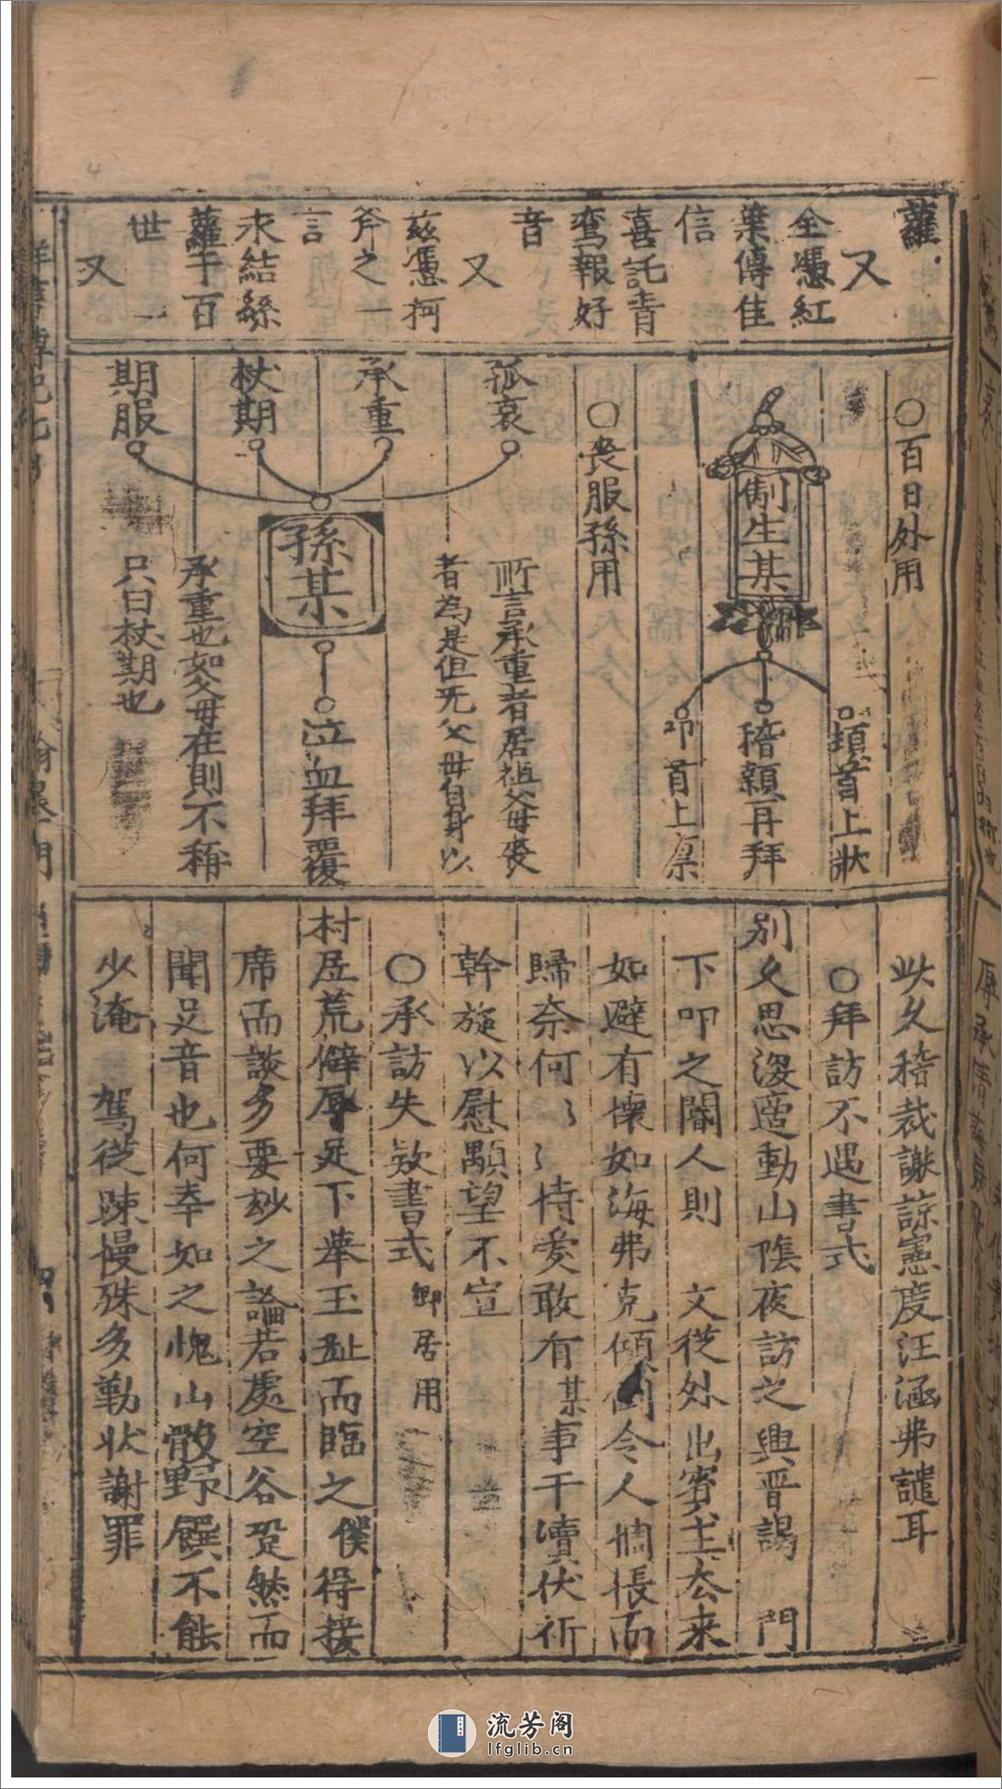 蘿
又
全憑紅
葉傳佳
信
喜託青
鸞報好
音
又
茲憑柯
斧之一
言
永結絲
蘿于百
世
又
○百日外用
頓首上狀
制生某
稽顙再拜
叩首上禀
○喪服孫用
孤哀
承重
杖期
期服
孫某
泣血拜覆
所言承重者居祖父母喪
者為是但无父母自身以
承重也如父母在則不稱
只曰杖期也
此久稽裁謝諒憲度汪涵弗譴耳
○拜訪不遇書式
別久思深適動山陰夜訪之興晋謁 門
下叩之閽人則 文從外出賓主厺来
如避有懷如海弗克傾倒令人惆悵而
歸奈何〻〻恃爱敢有某事干瀆伏祈
幹旋以慰顒望不宣
○承訪失欵書式 鄉居用
村居荒僻辱足下举玉趾而臨之僕得接
席而談多要玅之論若處空谷跫然而
聞足音也何幸如之愧山骰野饌不能
少淹 駕從踈慢殊多勤状謝罪
流芳阁
lfglib.cn